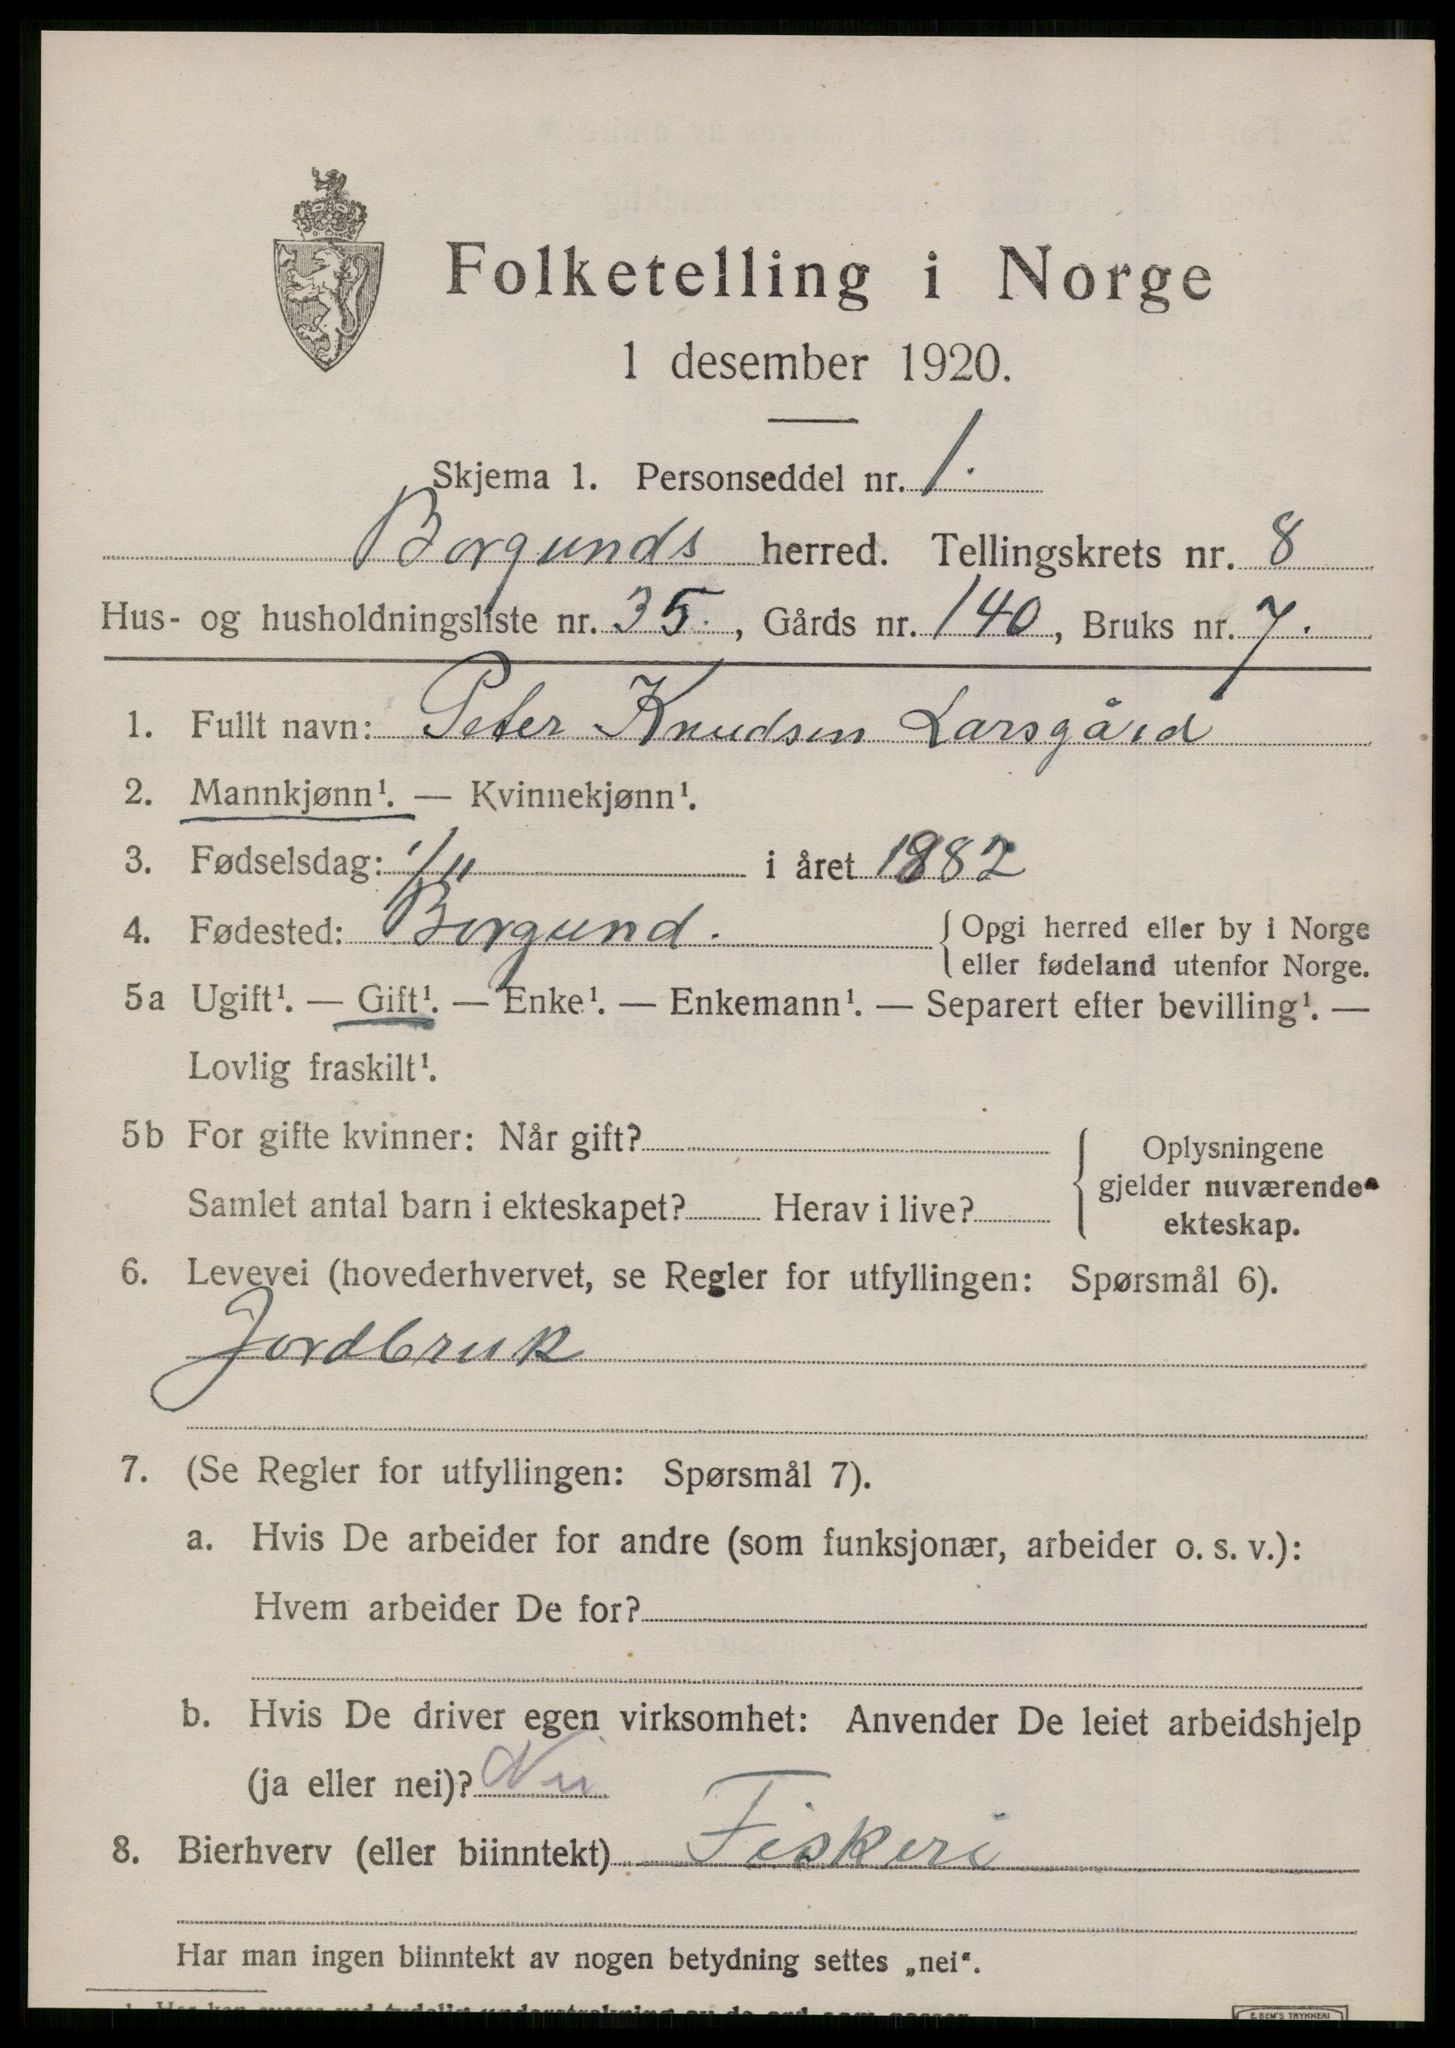 Folketelling i Norge
1 desember 1920.
Skjema 1. Personseddel nr. 1.
Borgunds herred. Tellingskrets nr. 8
Hus- og husholdningsliste nr. 35., Gårds nr. 140, Bruks nr. 7.
1. Fullt navn: Peter Knudsen Larsgård
2. Mannkjønn¹. — Kvinnekjønn¹.
3. Fødselsdag: 1/11 i året 1882
4. Fødested: Borgund. { Opgi herred eller by i Norge
eller fødeland utenfor Norge.
5a Ugift¹. — Gift¹. — Enke¹. — Enkemann¹. — Separert efter bevilling¹. —
Lovlig fraskilt¹.
5b For gifte kvinner: Når gift?
Samlet antal barn i ekteskapet? Herav i live?
{ Oplysningene
gjelder nuværende
ekteskap.
6. Levevei (hovederhvervet, se Regler for utfyllingen: Spørsmål 6).
Jordbruk
7. (Se Regler for utfyllingen: Spørsmål 7).
a. Hvis De arbeider for andre (som funksjonær, arbeider o. s. v.):
Hvem arbeider De for?
b. Hvis De driver egen virksomhet: Anvender De leiet arbeidshjelp
(ja eller nei)? Nei
8. Bierhverv (eller biinntekt) Fiskeri
Har man ingen biinntekt av nogen betydning settes „nei“.